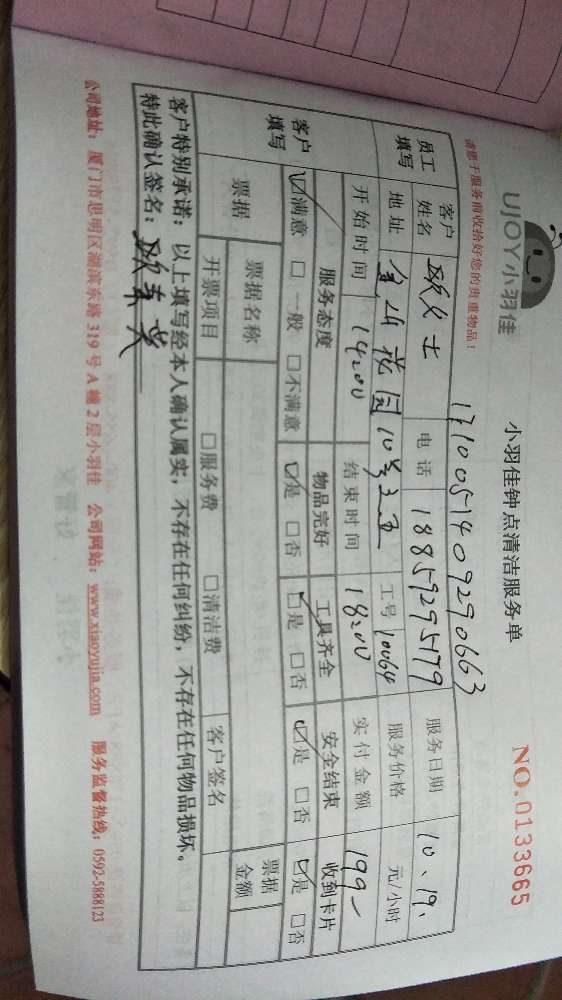 UJOY小羽佳
小羽佳钟点清洁服务单
NO.0133665
请您于服务前收拾好您的贵重物品！
1710051409290663
员工填写
客户姓名 欧女士 电话 18859295179 服务日期 10、19、
地址 金山花园10号 工号 10064 服务价格 元/小时
开始时间 14:00 结束时间 18:00 实付金额 199-
客户填写
服务态度 物品完好 工具齐全 安全结束 收到卡片
☑满意 □一般 □不满意 ☑是 □否 ☑是 □否 ☑是 □否 ☑是 □否
票据 票据名称 票据金额
开票项目 □服务费 □清洁费 客户签名
客户特别承诺：以上填写经本人确认属实，不存在任何纠纷，不存在任何物品损坏。
特此确认签名：
公司地址：厦门市思明区湖滨东路319号A幢2层小羽佳 公司网站：www.xiaoyujia.com 服务监督热线：0592-5888123